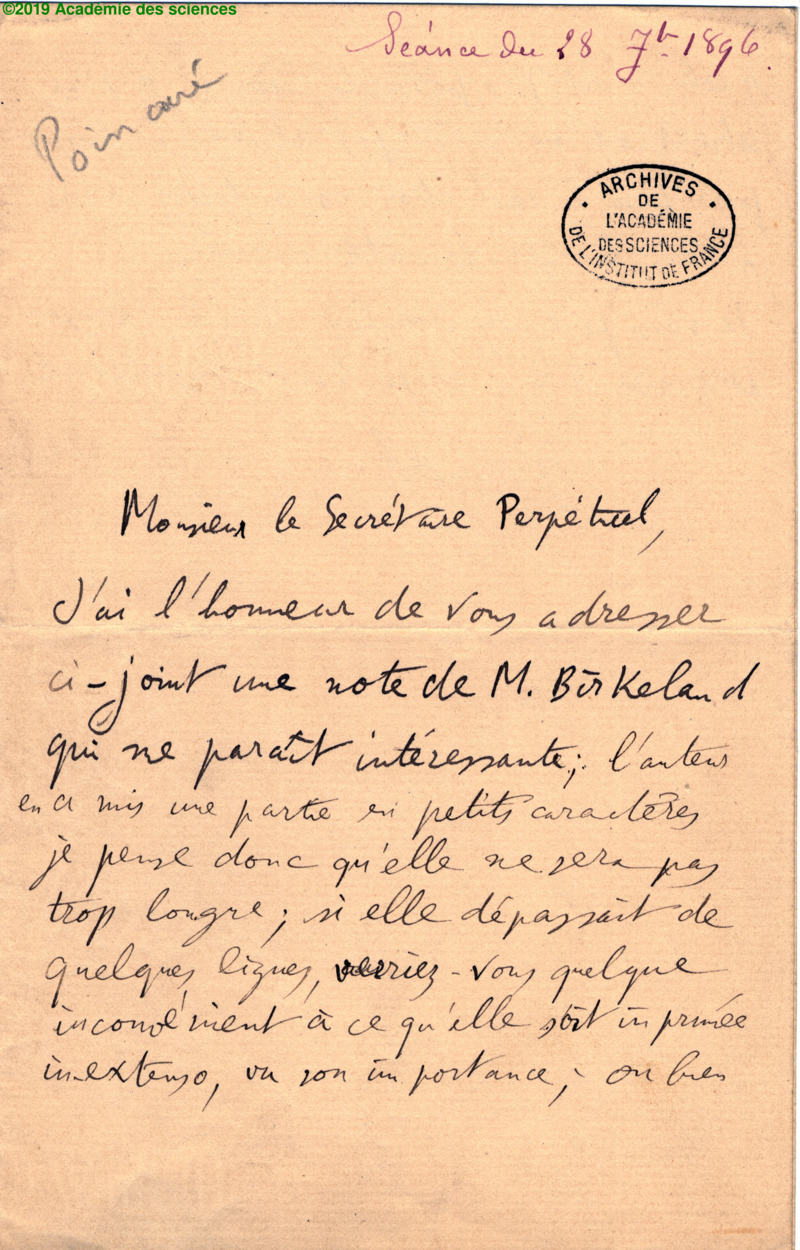 ©2019 Académie des sciences
Séance du 28 7b. 1896.
Poincaré
ARCHIVES
DE
L'ACADÉMIE
DES SCIENCES
DE L'INSTITUT DE FRANCE
Monsieur le Secrétaire Perpétuel,
J'ai l'honneur de vous adresser
ci-joint une note de M. Birkeland
qui me paraît intéressante; l'auteur
en a mis une partie en petits caractères
je pense donc qu'elle ne sera pas
trop longue; si elle dépassait de
quelques lignes, verriez-vous quelque
inconvénient à ce qu'elle soit imprimée
in extenso, vu son importance; ou bien